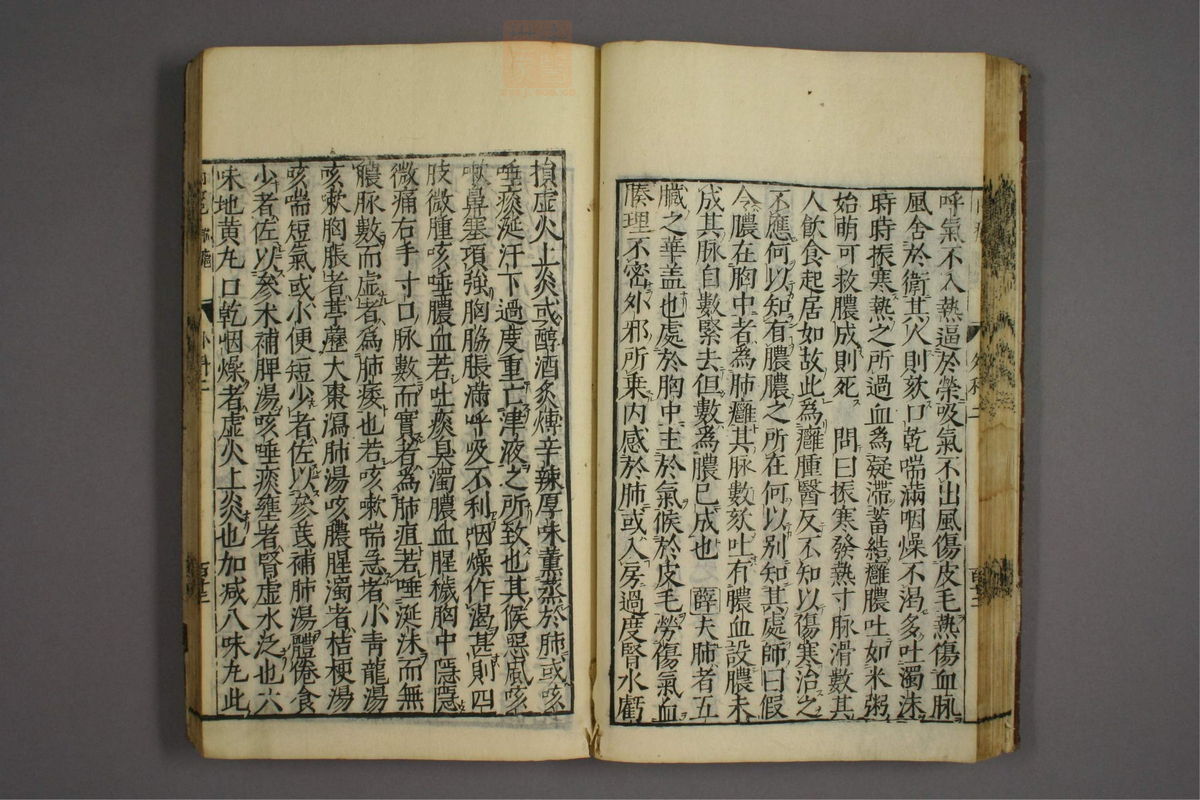 呼氣不入熱逼於榮吸氣不出風傷皮毛熱傷血脉
風舍於衛其人則欬口乾喘滿咽燥不渴多吐濁沫
時時振寒熱之所過血為凝滯蓄結癰膿吐如米粥
始萌可救膿成則死 問曰振寒發熱寸脉滑數其
人飲食起居如故此為癰腫醫反不知以傷寒治之
不應何以知有膿膿之所在何以別知其處師曰假
令膿在胸中者為肺癰其脉數欬吐有膿血設膿未
成其脉自數緊去但數為膿已成也 薛夫肺者五
臟之華盖也處於胸中主於氣候於皮毛勞傷氣血
腠理不密外邪所乘内感於肺或入房過度腎水虧
損虚火上炎或醇酒炙煿辛辣厚味薰蒸於肺或咳
唾痰涎汗下過度重亡津液之所致也其候惡風咳
嗽鼻塞項強胸脇脹滿呼吸不利咽燥作渴甚則四
肢微腫咳唾膿血若吐痰臭濁膿血腥穢胸中隱隱
微痛右手寸口脉數而實者為肺疽若唾涎沫而無
膿脉數而虚者為肺痿也若咳嗽喘急者小青龍湯
咳嗽胸脹者葶藶大棗瀉肺湯咳膿腥濁者桔梗湯
咳喘短氣或小便短少者佐以參芪補肺湯體倦食
少者佐以參朮補脾湯咳唾痰壅者腎虚水泛也六
味地黄丸口乾咽燥者虚火上炎也加减八味丸此